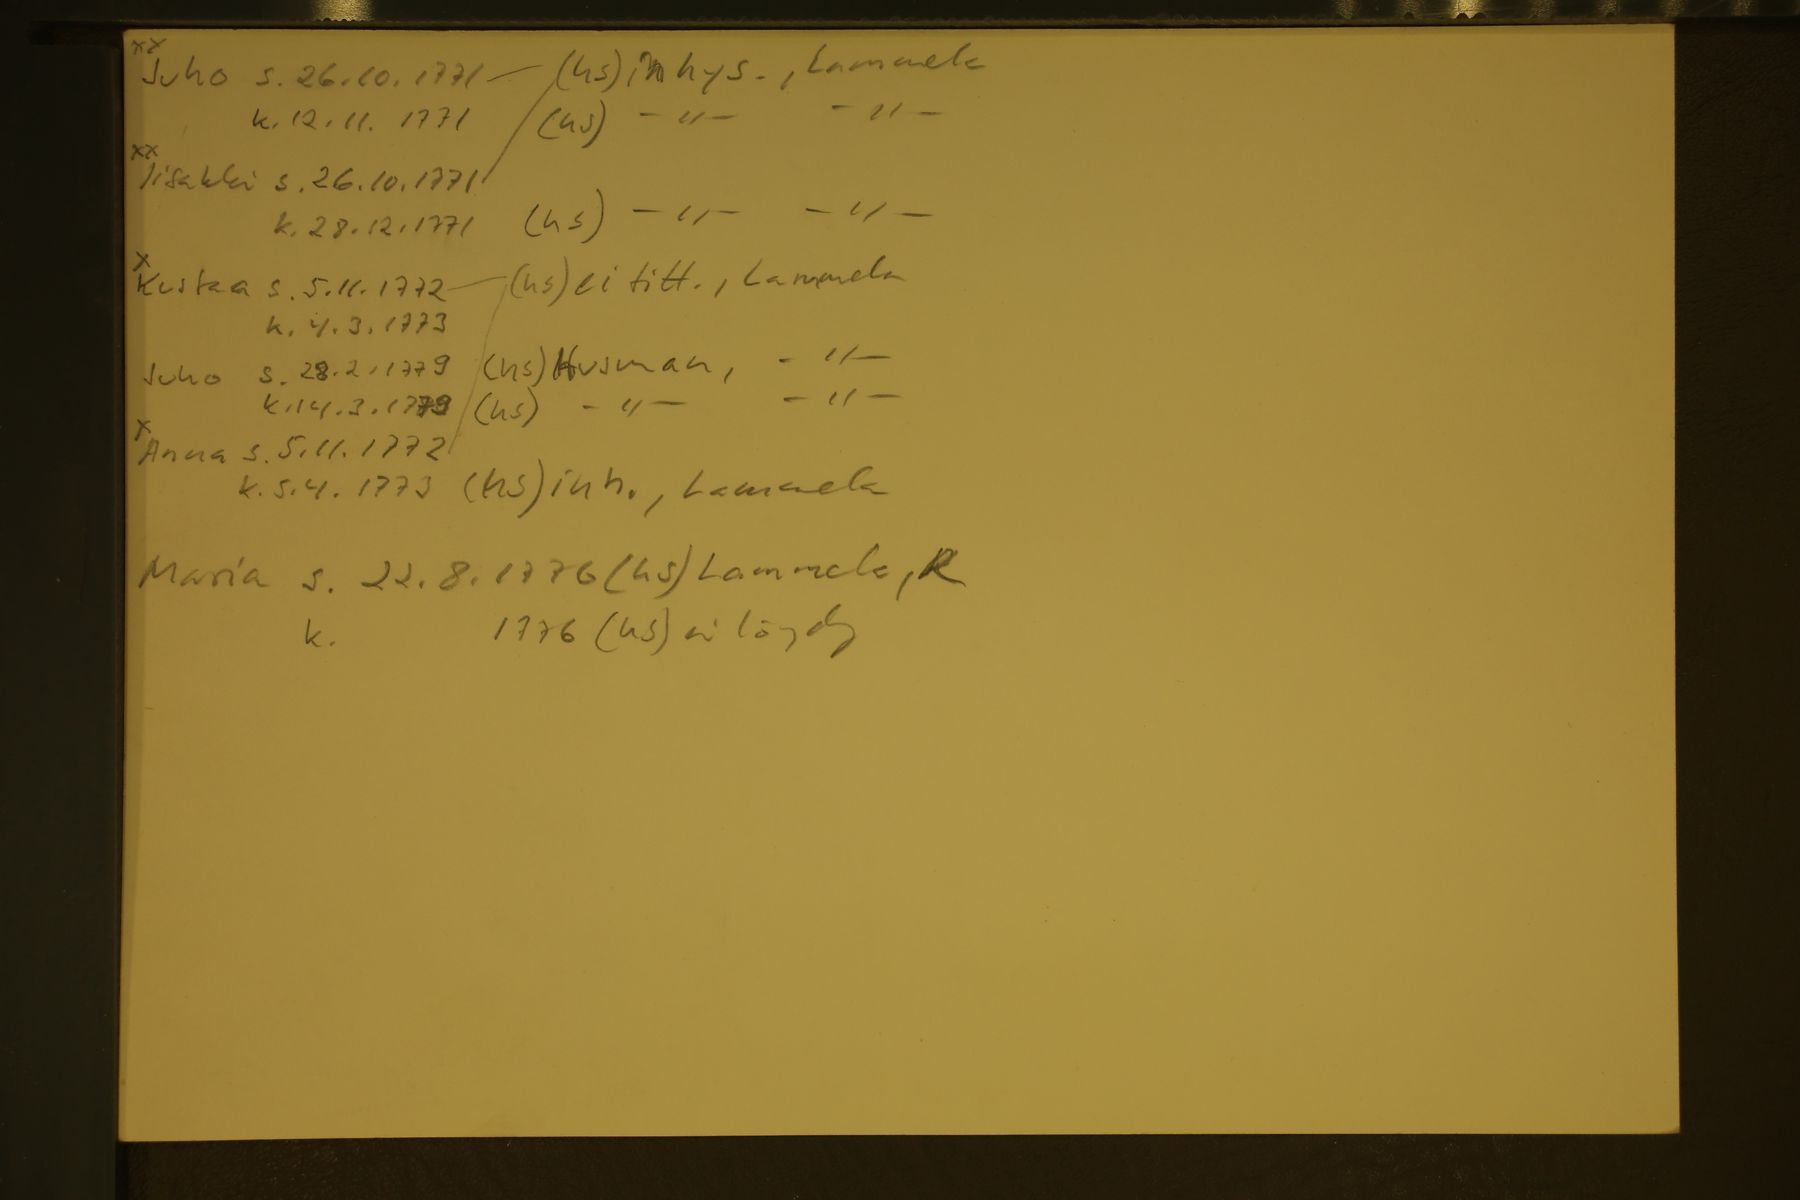 xx
Juho s. 26.10.1771 — (hs) inhys., Lammela
k. 12.11. 1771 (hs) -〃- -〃-
xx
Iisakki s. 26.10.1771
k. 28.12.1771 (hs) -〃- -〃-
x
Kustaa s. 5.11.1772 — (hs) ei titt., Lammela
k. 4.3.1773
Juho s. 28.2.1779 (hs) Husman, -〃-
k. 14.3.1779 (hs) -〃- -〃-
x
Anna s. 5.11.1772
k. 5.4. 1773 (hs) inh., Lammela
Maria s. 22.8.1776 (hs) Lammela, R
k. 1776 (hs) ei löydy